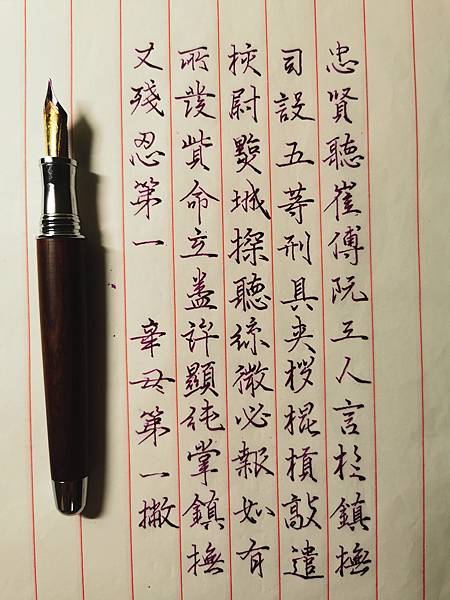 忠賢聽崔傅阮三人言於鎮撫
司設五等刑具夾拶棍槓敲遣
校尉城探聽絲微必報如有
所發貲命立盡許顯純掌鎮撫
又殘忍第一 辛丑第一撇